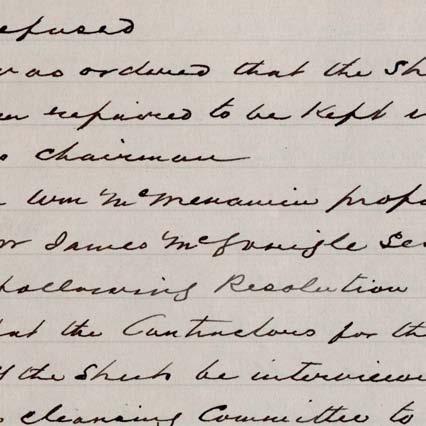 efused
was ordered that the Sh
en repaired to be Kept
s chairman
Wm McMenamin propo
or James McGonigle Sec
following Resolution
hat the Contractors for th
of the Sheds be interviewe
s cleansing Committee to